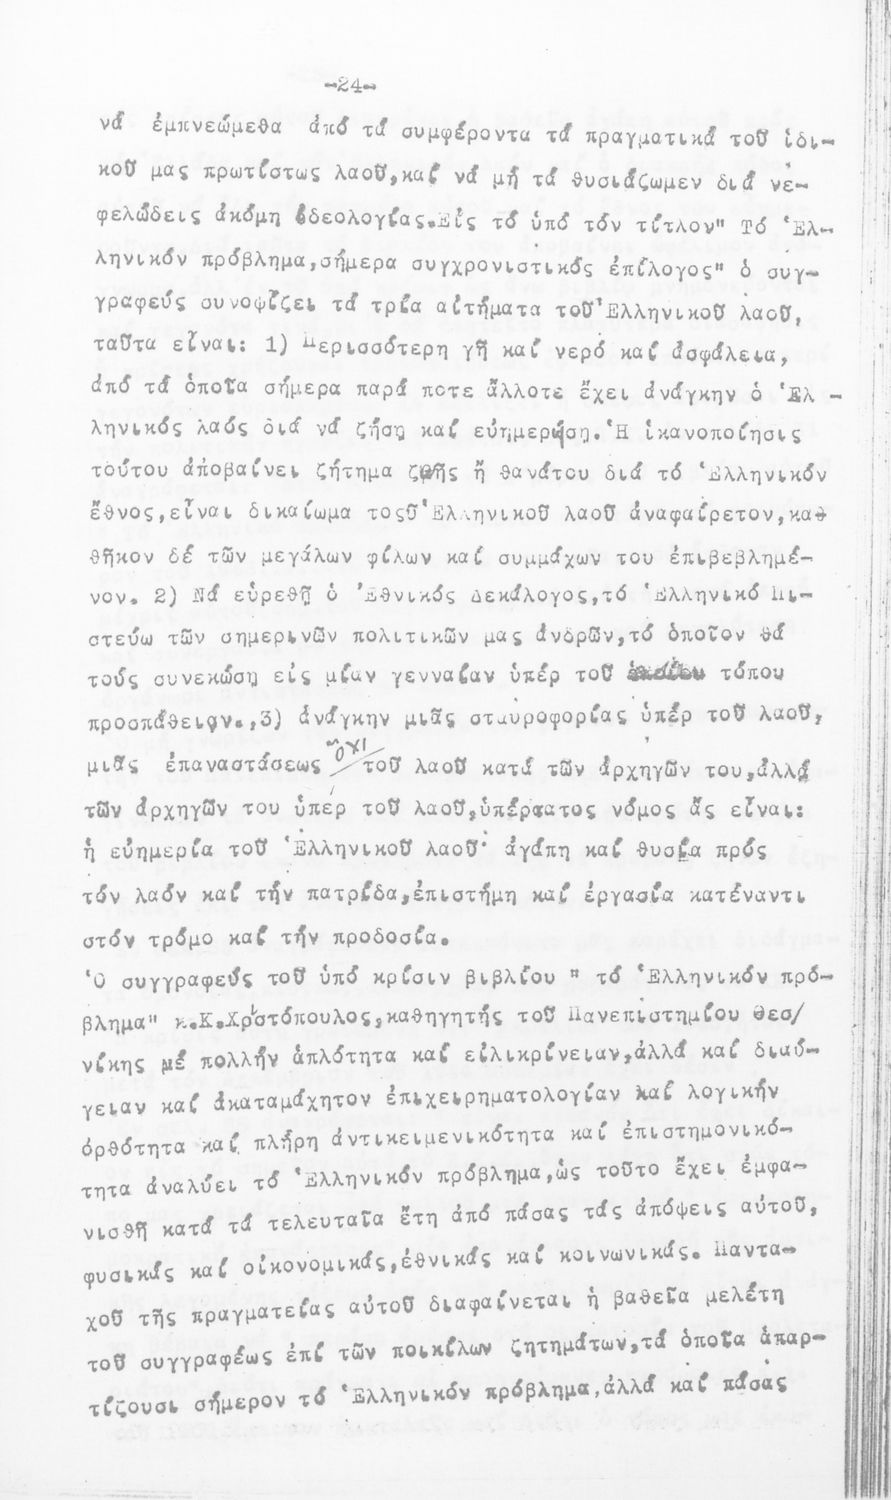 -24-
νά ἐμπνεώμεθα ἀπό τά συμφέροντα τά πραγματικά τοῦ ἰδι-
κοῦ μας πρωτίστως λαοῦ,καί νά μή τά θυσιάζωμεν διά νε-
φελώδεις ἀκόμη ἰδεολογίας.Εἰς τό ὑπό τόν τίτλον" Τό Ἑλ-
ληνικόν πρόβλημα,σήμερα συγχρονιστικός ἐπίλογος" ὁ συγ-
γραφεύς συνοψίζει τά τρία αἰτήματα τοῦ Ἑλληνικοῦ λαοῦ,
ταῦτα εἶναι: 1) Περισσότερη γῆ καί νερό καί ἀσφάλεια,
ἀπό τά ὁποῖα σήμερα παρά ποτε ἄλλοτε ἔχει ἀνάγκην ὁ Ἑλ -
ληνικός λαός διά νά ζήσῃ καί εὐημερήσῃ.Ἡ ἱκανοποίησις
τούτου ἀποβαίνει ζήτημα ζωῆς ἤ θανάτου διά τό Ἑλληνικόν
ἔθνος,εἶναι δικαίωμα τοςῦ Ἑλληνικοῦ λαοῦ ἀναφαίρετον,κα-
θῆκον δέ τῶν μεγάλων φίλων καί συμμάχων του ἐπιβεβλημέ-
νον. 2) Νά εὑρεθῇ ὁ Ἐθνικός Δεκάλογος,τό Ἑλληνικό Πι-
στεύω τῶν σημερινῶν πολιτικῶν μας ἀνδρῶν,τό ὁποῖον θά
τούς συνενώσῃ εἰς μίαν γενναίαν ὑπέρ τοῦ τόπου
προσπάθειαν.,3) ἀνάγκην μιᾶς σταυροφορίας ὑπέρ τοῦ λαοῦ,
μιᾶς ἐπαναστάσεως ὄχι τοῦ λαοῦ κατά τῶν ἀρχηγῶν του,ἀλλά
τῶν ἀρχηγῶν του ὑπέρ τοῦ λαοῦ,ὑπέρτατος νόμος ἄς εἶναι:
ἡ εὐημερία τοῦ Ἑλληνικοῦ λαοῦ· ἀγάπη καί θυσία πρός
τόν λαόν καί τήν πατρίδα,ἐπιστήμη καί ἐργασία κατέναντι
στόν τρόμο καί τήν προδοσία.
Ὁ συγγραφεύς τοῦ ὑπό κρίσιν βιβλίου " τό Ἑλληνικόν πρό-
βλημα" κ.Κ.Χριστόπουλος,καθηγητής τοῦ Πανεπιστημίου Θεσ/
νίκης μέ πολλήν ἁπλότητα καί εἰλικρίνειαν,ἀλλά καί διαύ-
γειαν καί ἀκαταμάχητον ἐπιχειρηματολογίαν καί λογικήν
ὀρθότητα καί πλήρη ἀντικειμενικότητα καί ἐπιστημονικό-
τητα ἀναλύει τό Ἑλληνικόν πρόβλημα,ὡς τοῦτο ἔχει ἐμφα-
νισθῆ κατά τά τελευταῖα ἔτη ἀπό πάσας τάς ἀπόψεις αὐτοῦ,
φυσικάς καί οἰκονομικάς,ἐθνικάς καί κοινωνικάς. Παντα-
χοῦ τῆς πραγματείας αὐτοῦ διαφαίνεται ἡ βαθεῖα μελέτη
τοῦ συγγραφέως ἐπί τῶν ποικίλων ζητημάτων,τά ὁποῖα ἀπαρ-
τίζουσι σήμερον τό Ἑλληνικόν πρόβλημα,ἀλλά καί πάσας